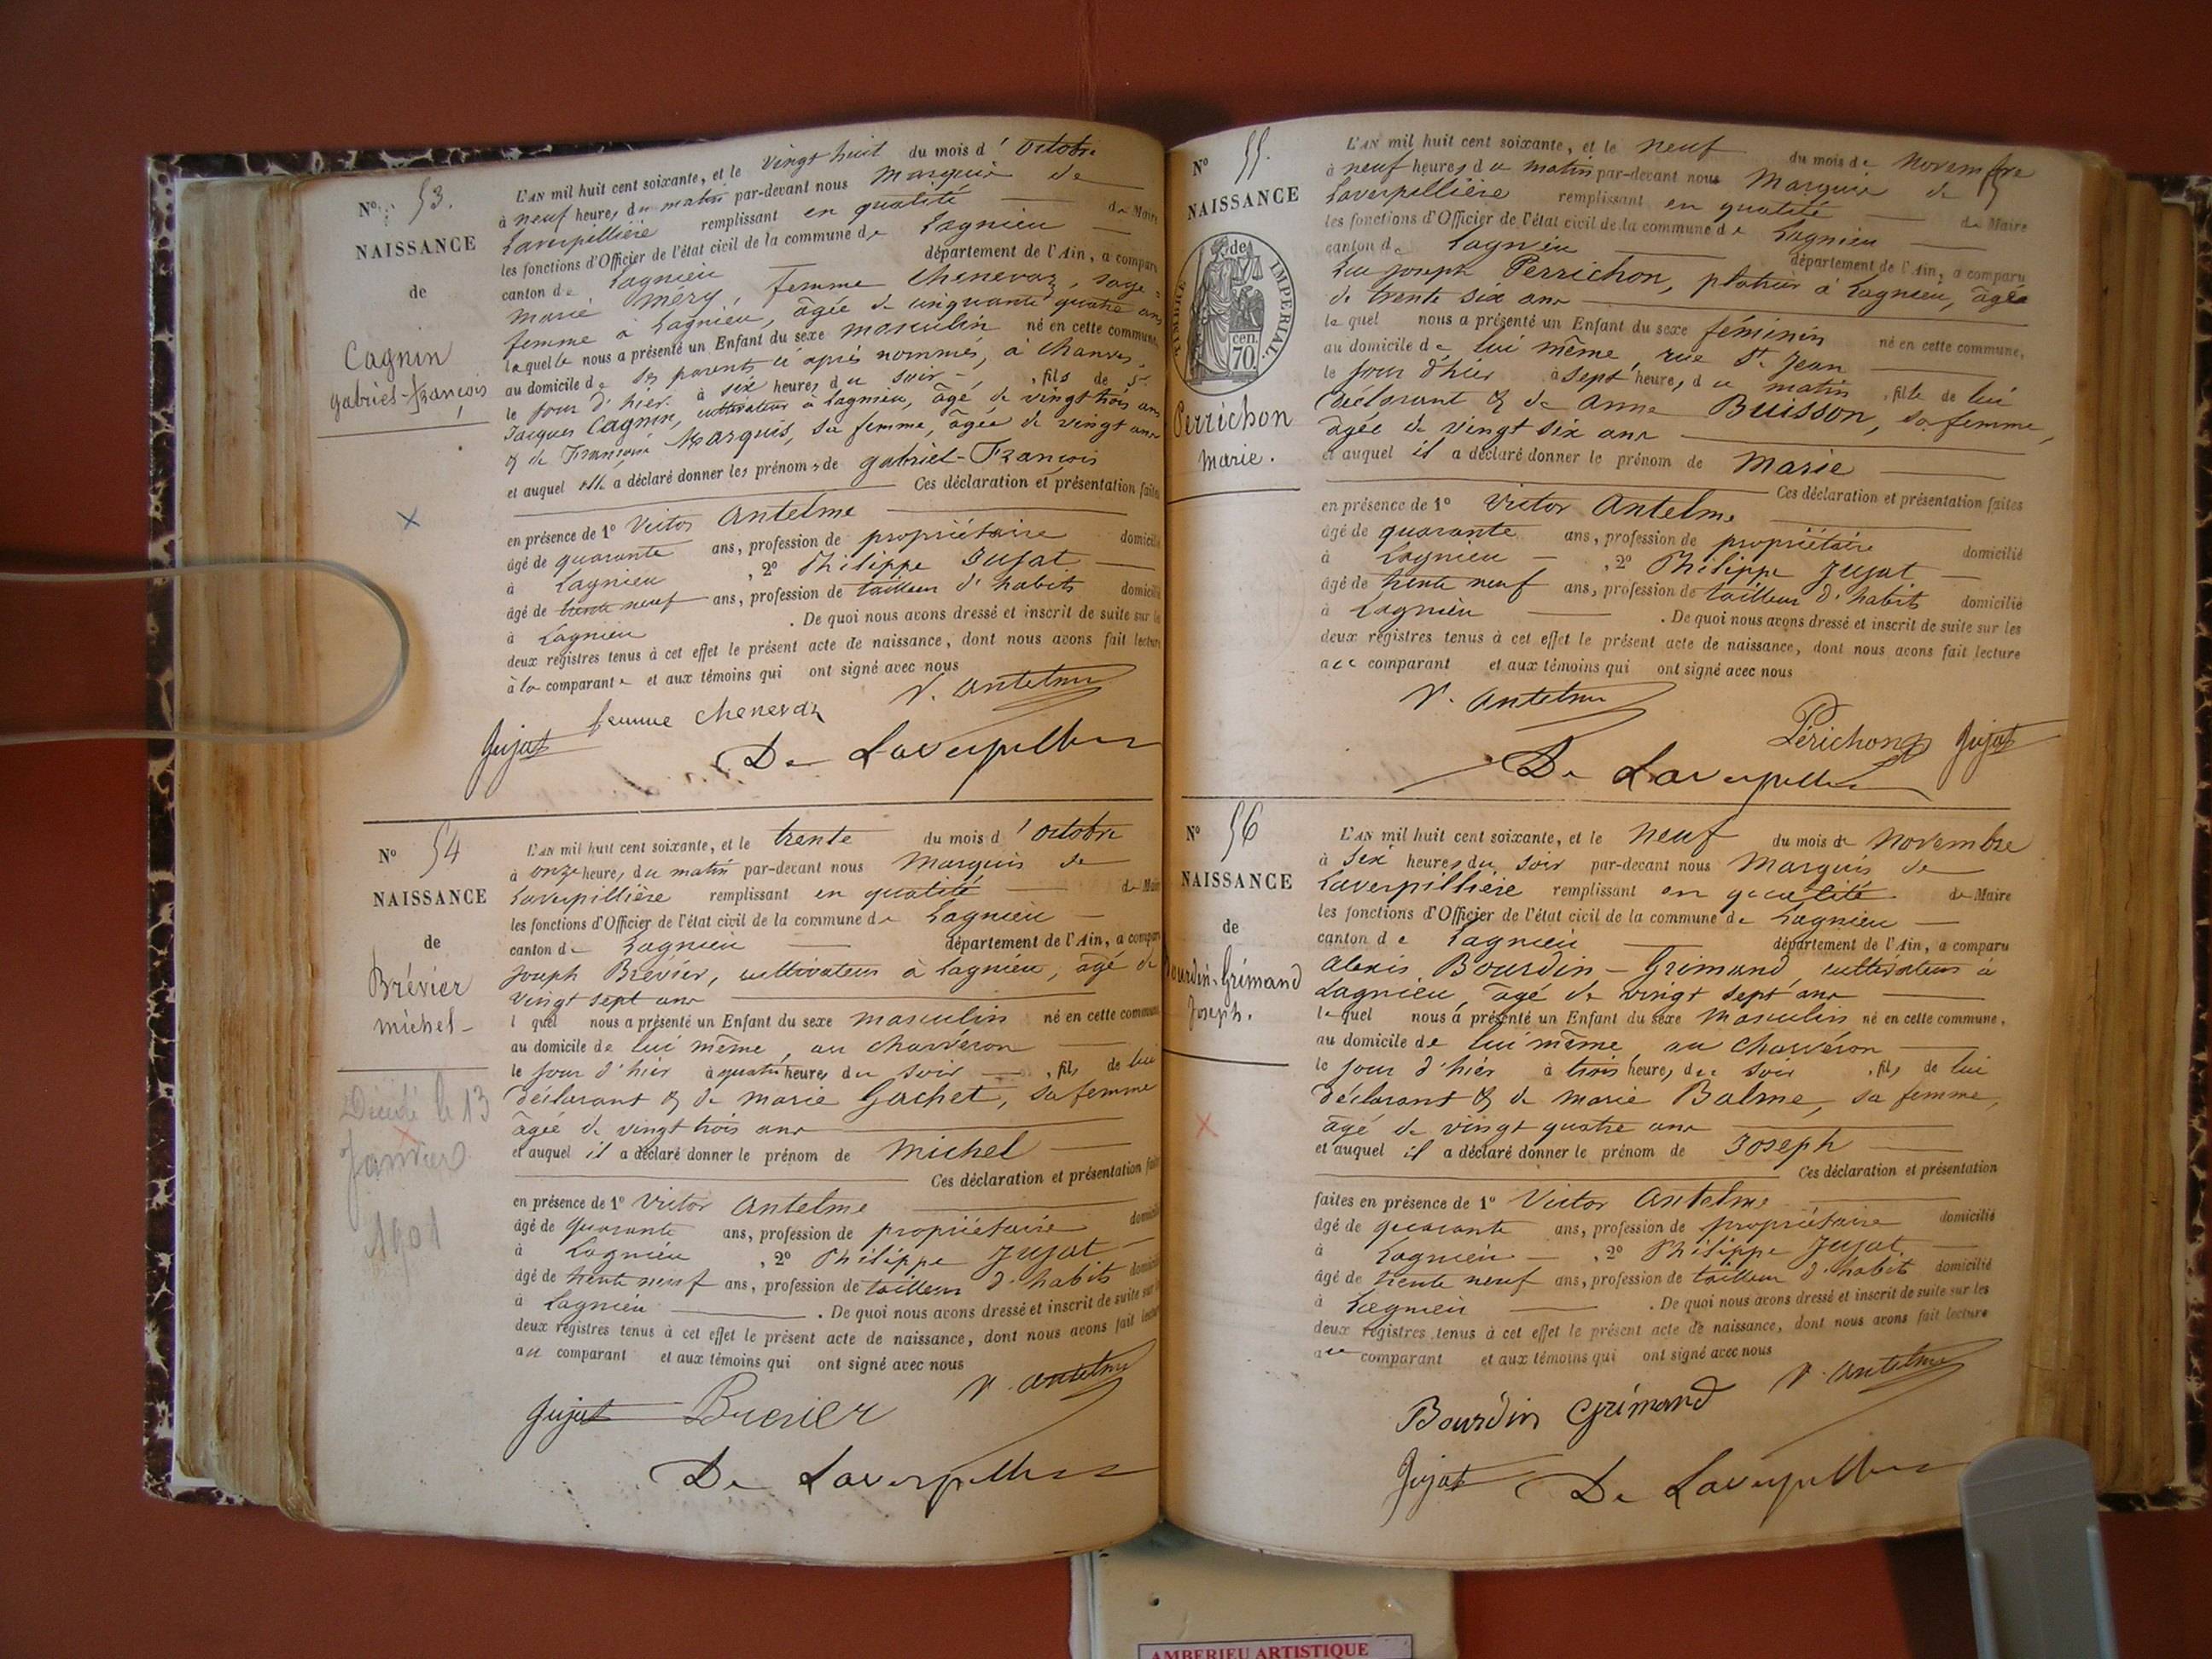 N° 53.
NAISSANCE
de
Cagnin
gabriel-François
L'AN mil huit cent soixante, et le vingt huit du mois d'octobre
à neuf heures du matin par-devant nous Marquis de
Laverpillière remplissant en qualité de Maire
les fonctions d'Officier de l'état civil de la commune de Lagnieu
canton de Lagnieu département de l'Ain, a comparu
marie Méry, femme Chenevaz, sage=
femme à Lagnieu, âgée de cinquante quatre ans
laquelle nous a présenté un Enfant du sexe masculin né en cette commune
au domicile de ses parents ci après nommés, à Chanves,
le jour d'hier à six heures du soir, fils de
Jacques Cagnin, cultivateur à Lagnieu, âgé de vingt trois ans
& de Françoise Marquis, sa femme, âgée de vingt ans
et auquel elle a déclaré donner les prénoms de gabriel-François
Ces déclaration et présentation faites
en présence de 1° Victor Antelme
âgé de quarante ans, profession de propriétaire domicilié
à Lagnieu, 2° Philippe Jujat
âgé de trente neuf ans, profession de tailleur d'habits domicilié
à Lagnieu. De quoi nous avons dressé et inscrit de suite sur les
deux registres tenus à cet effet le présent acte de naissance, dont nous avons fait lecture
à la comparante et aux témoins qui ont signé avec nous
V. Antelme
femme chenevaz
Jujat
De Laverpilliere
N° 54
NAISSANCE
de
Brévier
michel
Décédé le 13
Janvier
1901
L'AN mil huit cent soixante, et le trente du mois d'octobre
à onze heures du matin par-devant nous Marquis de
Laverpillière remplissant en qualité de Maire
les fonctions d'Officier de l'état civil de la commune de Lagnieu
canton de Lagnieu département de l'Ain, a comparu
Joseph Brévier, cultivateur à Lagnieu, âgé de
vingt sept ans
lequel nous a présenté un Enfant du sexe masculin né en cette commune
au domicile de lui même, au Charveron
le jour d'hier à quatre heures du soir, fils de lui
déclarant & de marie Gachet, sa femme
âgée de vingt trois ans
et auquel il a déclaré donner le prénom de Michel
Ces déclaration et présentation faites
en présence de 1° Victor Antelme
âgé de quarante ans, profession de propriétaire domicilié
à Lagnieu, 2° Philippe Jujat
âgé de trente neuf ans, profession de tailleur d'habits domicilié
à Lagnieu. De quoi nous avons dressé et inscrit de suite sur les
deux registres tenus à cet effet le présent acte de naissance, dont nous avons fait lecture
au comparant et aux témoins qui ont signé avec nous
V. Antelme
Jujat Brevier
De Laverpilliere
N° 55.
NAISSANCE
de
TIMBRE IMPERIAL.
70 cen.
Perrichon
Marie.
L'AN mil huit cent soixante, et le neuf du mois de Novembre
à neuf heures du matin par-devant nous Marquis de
Laverpillière remplissant en qualité de Maire
les fonctions d'Officier de l'état civil de la commune de Lagnieu
canton de Lagnieu département de l'Ain, a comparu
Luc Joseph Perrichon, platrier à Lagnieu, âgé
de trente six ans
lequel nous a présenté un Enfant du sexe féminin né en cette commune,
au domicile de lui même, rue St. Jean
le jour d'hier à sept heures du matin, fille de lui
déclarant & de Anne Buisson, sa femme,
âgée de vingt six ans
et auquel il a déclaré donner le prénom de Marie
Ces déclaration et présentation faites
en présence de 1° Victor Antelme
âgé de quarante ans, profession de propriétaire domicilié
à Lagnieu, 2° Philippe Jujat
âgé de trente neuf ans, profession de tailleur d'habits domicilié
à Lagnieu. De quoi nous avons dressé et inscrit de suite sur les
deux registres tenus à cet effet le présent acte de naissance, dont nous avons fait lecture
au comparant et aux témoins qui ont signé avec nous
V. Antelme
Périchon Jujat
De Laverpilliere
N° 56
NAISSANCE
de
Bourdin-Grimand
Joseph.
L'AN mil huit cent soixante, et le neuf du mois de Novembre
à six heures du soir par-devant nous Marquis de
Laverpillière remplissant en qualité de Maire
les fonctions d'Officier de l'état civil de la commune de Lagnieu
canton de Lagnieu département de l'Ain, a comparu
Alexis Bourdin-Grimand, cultivateur à
Lagnieu, âgé de vingt sept ans
lequel nous a présenté un Enfant du sexe Masculin né en cette commune,
au domicile de lui même, au Charvéron
le jour d'hier à trois heures du soir, fils de lui
déclarant & de Marie Balme, sa femme,
âgé de vingt quatre ans
et auquel il a déclaré donner le prénom de Joseph
Ces déclaration et présentation
faites en présence de 1° Victor Antelme
âgé de quarante ans, profession de propriétaire domicilié
à Lagnieu, 2° Philippe Jujat
âgé de trente neuf ans, profession de tailleur d'habits domicilié
à Lagnieu. De quoi nous avons dressé et inscrit de suite sur les
deux registres tenus à cet effet le présent acte de naissance, dont nous avons fait lecture
au comparant et aux témoins qui ont signé avec nous
V. Antelme
Bourdin Grimand
Jujat De Laverpilliere
AMBERIEU ARTISTIQUE